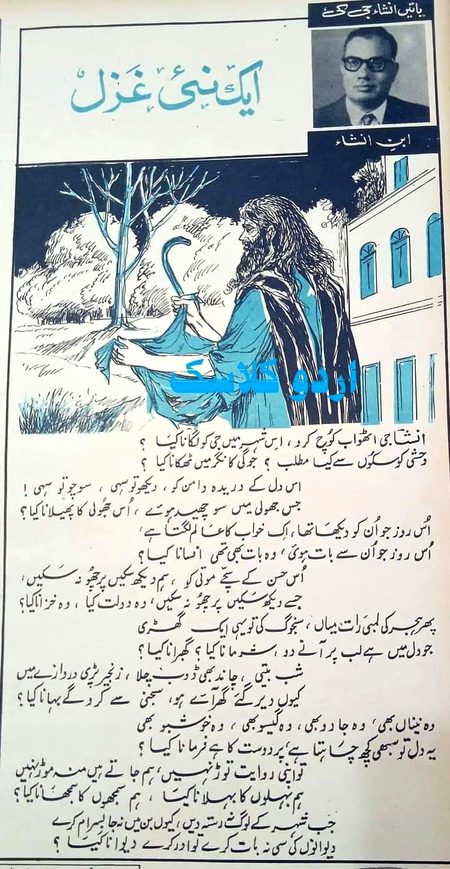 باتیں انشاء جی کی
ایک نئی غزل
ابنِ انشاء
اردو کلاسک
انشا جی اٹھو اب کوچ کرو ، اِس شہر میں جی کو لگانا کیا ؟
وحشی کو سکوں سے کیا مطلب ؟ جوگی کا نگر میں ٹھکانا کیا ؟
اس دل کے دریدہ دامن کو ، دیکھو تو سہی ، سوچو تو سہی !
جس جھولی میں سو چھید ہوئے ، اُس جھولی کا پھیلانا کیا ؟
اُس روز جو اُن کو دیکھا تھا ، اک خواب کا عالم لگتا ہے ،
اُس روز جو اُن سے بات ہوئی ، وہ بات بھی تھی افسانا کیا ؟
اُس حسن کے سچے موتی کو ، ہم دیکھ سکیں پر چھو نہ سکیں ،
جسے دیکھ سکیں پر چھو نہ سکیں ، وہ دولت کیا ، وہ خزانا کیا ؟
پھر ہجر کی لمبی رات میاں ، سنجوگ کی تو یہی ایک گھڑی
جو دل میں ہے لب پر آنے دو ، شرمانا کیا ؟ گھبرانا کیا ؟
شب بیتی ، چاند بھی ڈوب چلا ، زنجیر پڑی دروازے میں
کیوں دیر گئے گھر آئے ہو ، سجنی سے کرو گے بہانا کیا ؟
وہ نیناں بھی ، وہ جادو بھی ، وہ گیسو بھی ، وہ خوشبو بھی
یہ دل تو سبھی کچھ چاہتا ہے ، پر دوست کا ہے فرمانا کیا ؟
تو اپنی روایت توڑ نہیں ، ہم جاتے ہیں منہ موڑ نہیں
ہم بہلوں کا بہلانا کیا ، ہم سمجھوں کا سمجھانا کیا ؟
جب شہر کے لوگ نہ رستہ دیں ، کیوں بن میں نہ جا بسرام کرے
دیوانوں کی سی نہ بات کرے تو اور کرے دیوانا کیا ؟